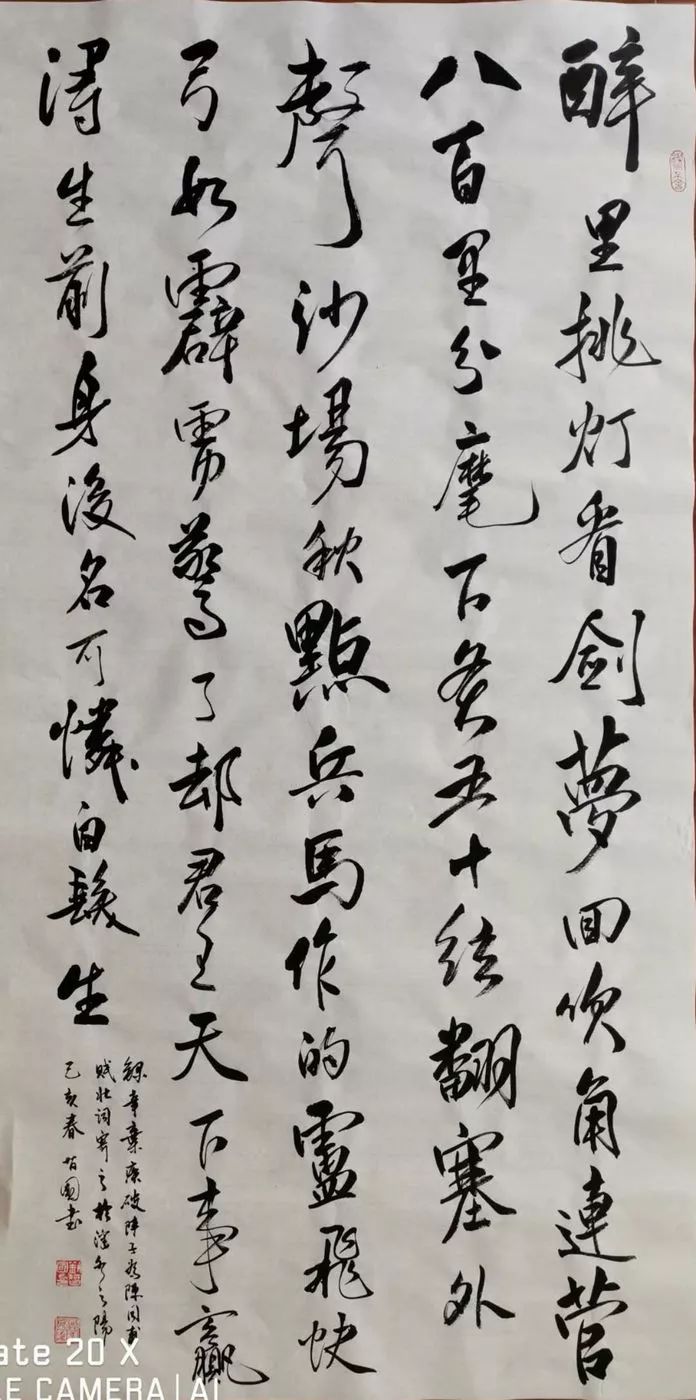 醉里挑灯看剑夢回吹角連营
八百里分麾下炙五十絃翻塞外
聲沙場秋點兵馬作的盧飛快
弓如霹雳驚了却君王天下事赢
得生前身後名可憐白髮生
錄辛棄疾破陣子為陳同甫
賦壮詞寄之於水之陽
己亥春國書
ate 20 X
E CAMERA | AI